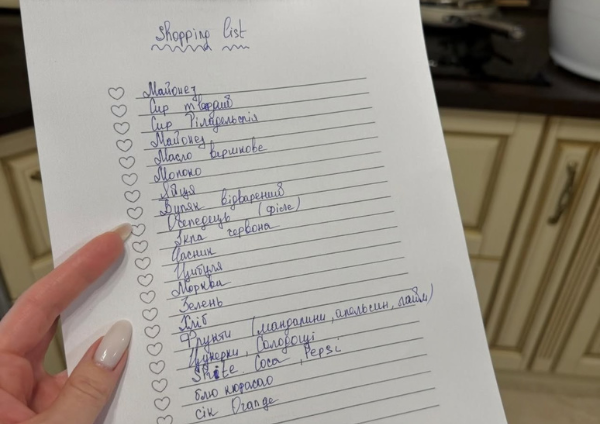 Shopping list
Майонез
Сир твердий
Сир Філадельфія
Майонез
Масло вершкове
Молоко
Яйця
Буряк відварений
Оселедець (філе)
Ікра червона
Часник
Цибуля
Морква
Зелень
Хліб
Фрукти (мандарини, апельсин, лайм)
Цукерки, Солодощі
Sprite Coca, Pepsi
блю кюрасао
сік Orange